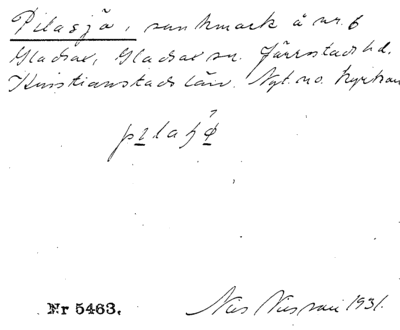 Pilasjö, sankmark å nr. 6
Gladsax, Gladsax sn. Järrestads hd.
Kristianstads län. Nyt. no. kyrkan
pɪlaʃø
Nr 5463. 1931.